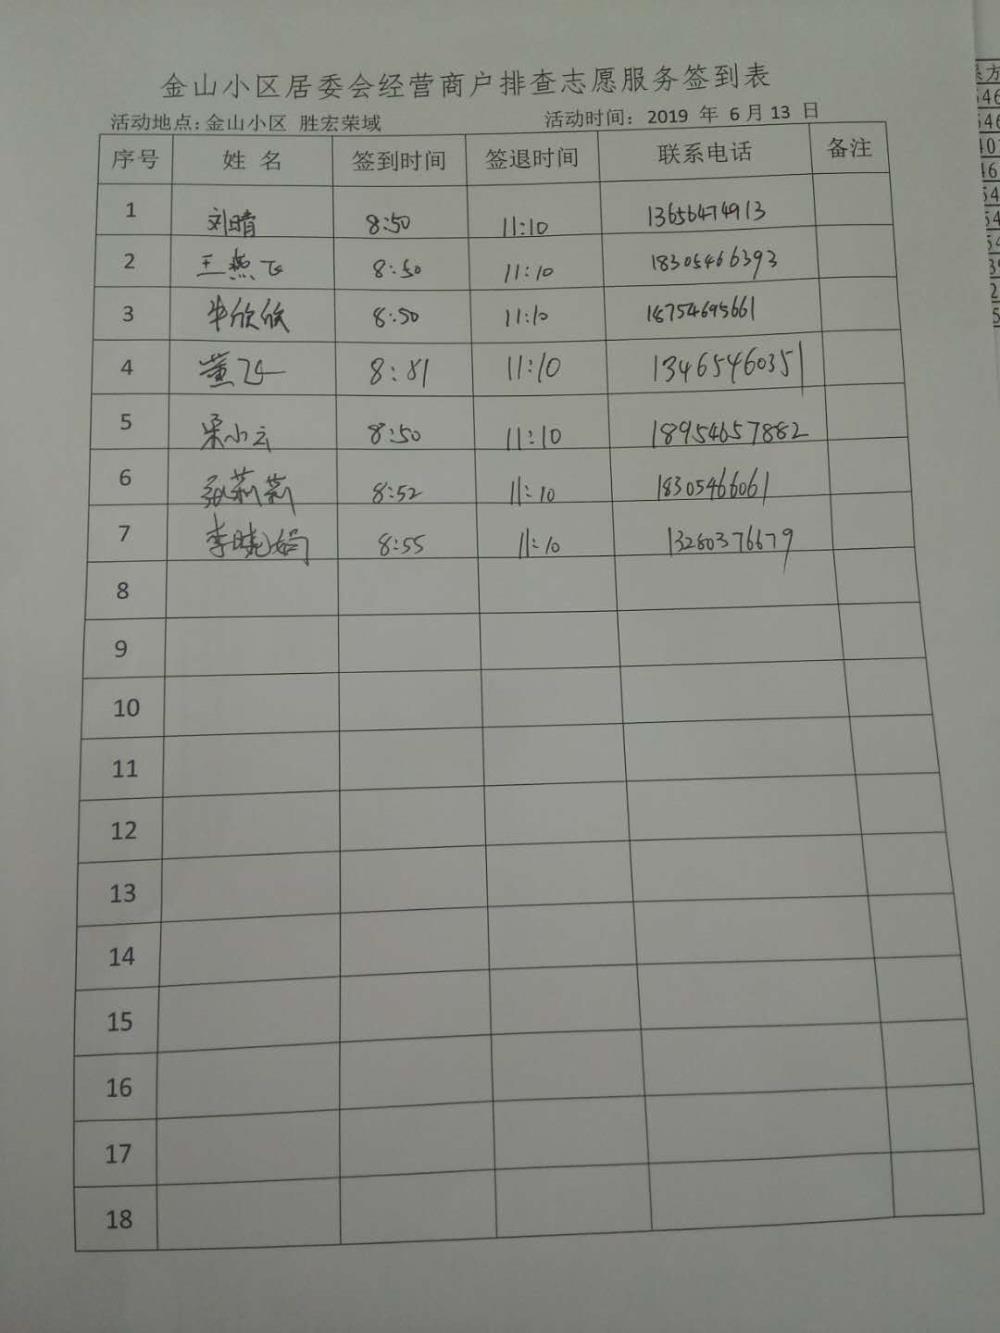 金山小区居委会经营商户排查志愿服务签到表
活动地点: 金山小区 胜宏荣域 活动时间: 2019 年 6 月 13 日
序号 姓 名 签到时间 签退时间 联系电话 备注
1 刘晴 8:50 11:10 13656474913
2 王燕飞 8:50 11:10 18305466393
3 牛欣欣 8:50 11:10 18754695661
4 董飞 8:81 11:10 13465460351
5 宋小云 8:50 11:10 18954657882
6 张莉莉 8:52 11:10 18305466061
7 李晓娟 8:55 11:10 13280376679
8
9
10
11
12
13
14
15
16
17
18